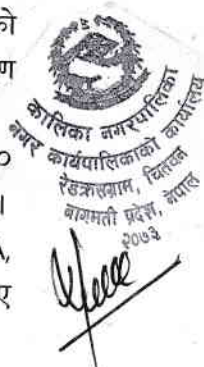 को
ण
कालिका नगरपालिका
नगर कार्यपालिकाको कार्यालय
रेडक्रसग्राम, चितवन
बागमती प्रदेश, नेपाल
२०७३
०
।
,
ए